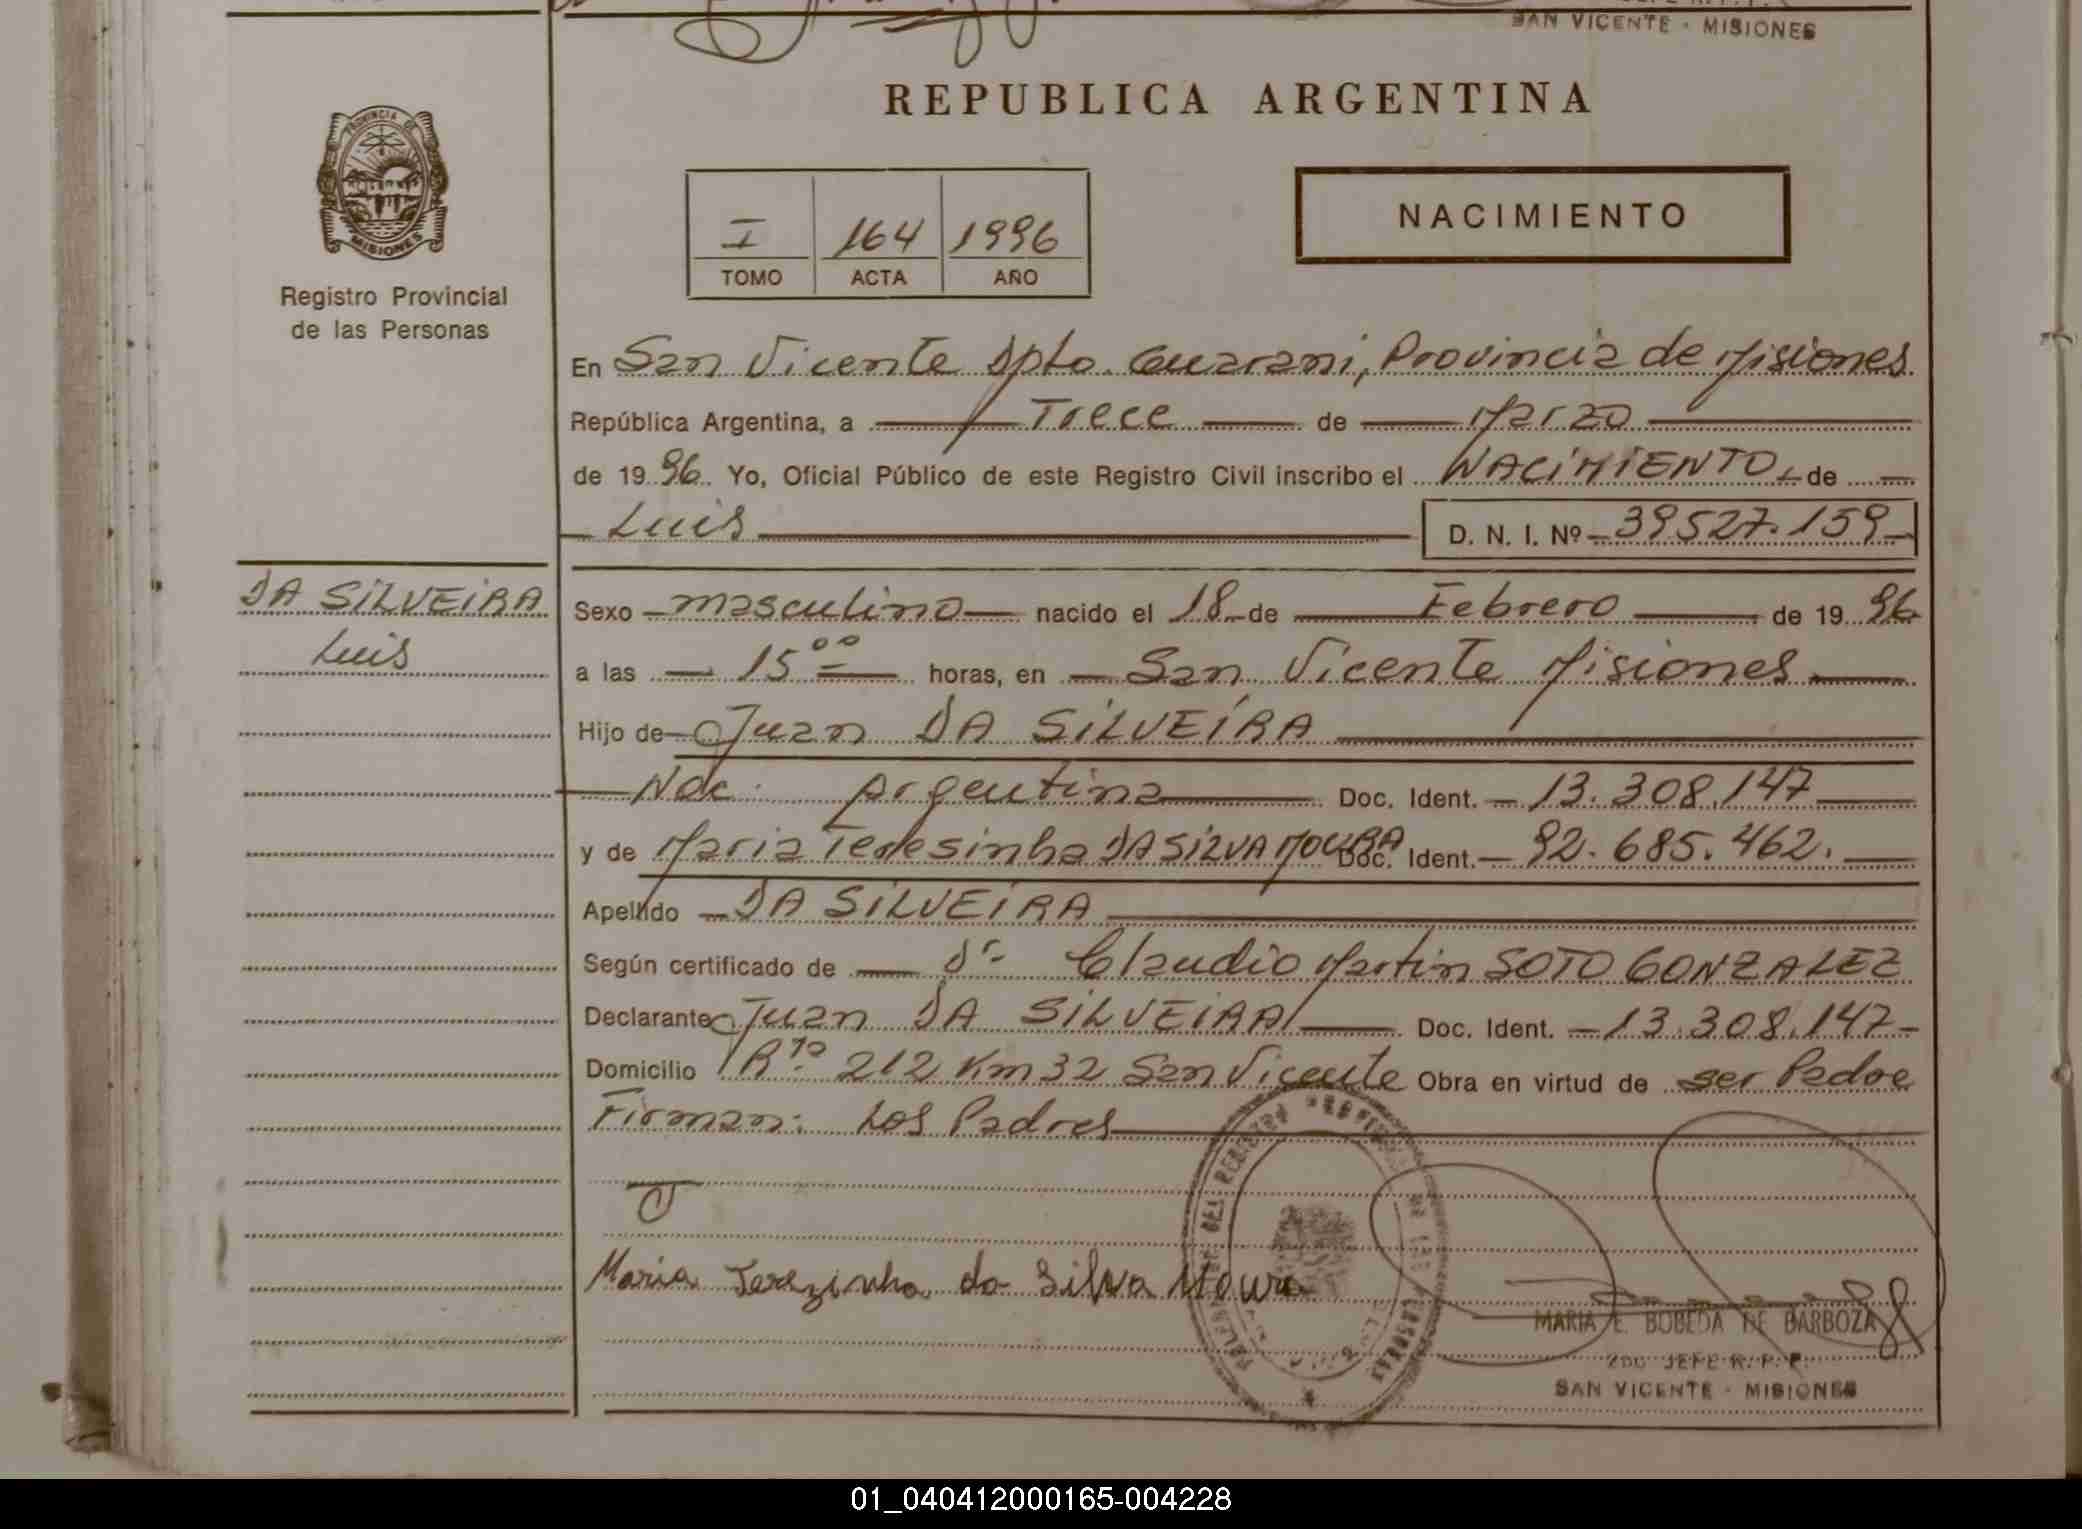 SAN VICENTE - MISIONES
REPUBLICA ARGENTINA
PROVINCIA DE
MISIONES
Registro Provincial
de las Personas
I 164 1996
TOMO ACTA AÑO
NACIMIENTO
En San Vicente Dpto. Guarani, Provincia de Misiones
República Argentina, a Trece de Marzo
de 19 96 Yo, Oficial Público de este Registro Civil inscribo el NACIMIENTO de
Luis D. N. I. Nº 39527.159
DA SILVEIRA
Luis
Sexo masculino nacido el 18 de Febrero de 19 96
a las 15 00 horas, en San Vicente Misiones
Hijo de Juan DA SILVEIRA
Nac. Argentina Doc. Ident. 13.308.147
y de Maria Teresinha DA SILVA MOURA Doc. Ident. 92.685.462.
Apellido DA SILVEIRA
Según certificado de Dr Claudio Martin SOTO GONZALEZ
Declarante Juan DA SILVEIRA Doc. Ident. 13.308.147
Domicilio Rta 212 Km 32 San Vicente Obra en virtud de ser Padre
Firman: Los Padres
Maria Terezinha da Silva Moura
MARIA E. BOBEDA DE BARBOZA
2DO JEFE R. P. P.
SAN VICENTE - MISIONES
01_040412000165-004228